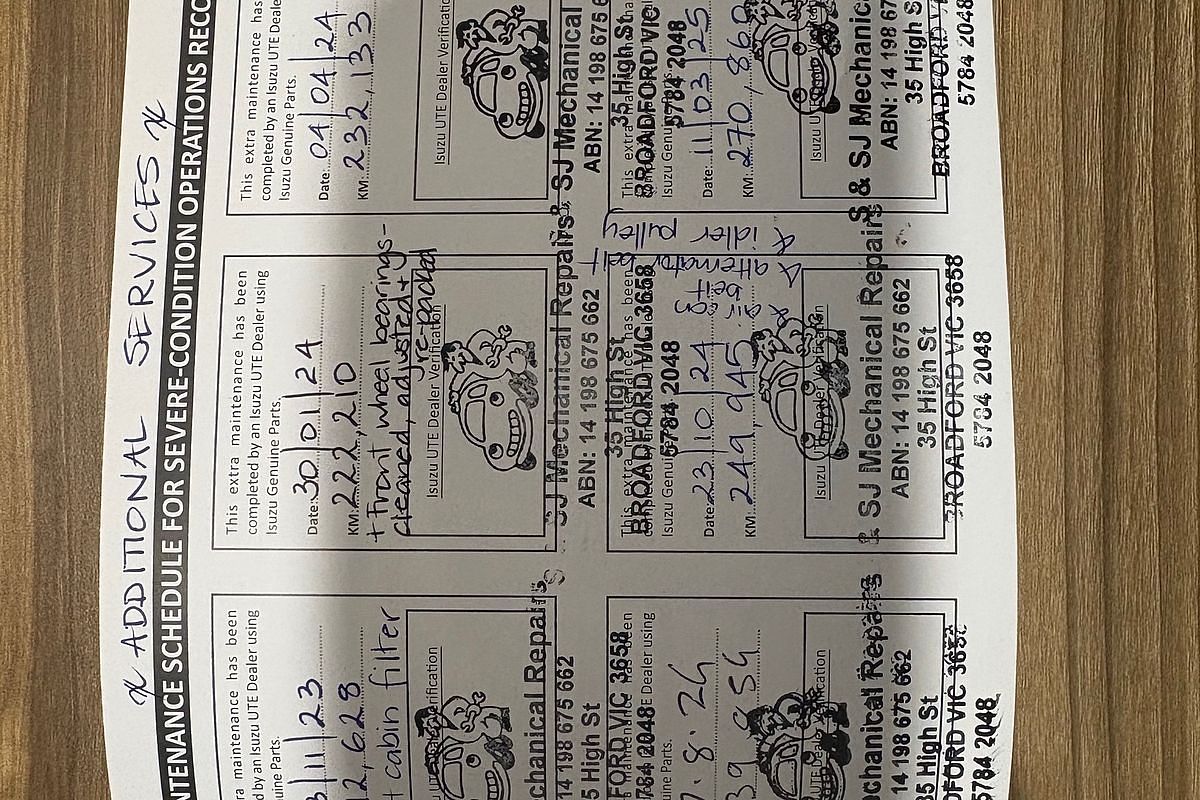 * ADDITIONAL SERVICES *
NTENANCE SCHEDULE FOR SEVERE-CONDITION OPERATIONS RECO
ra maintenance has been
d by an Isuzu UTE Dealer using
Parts.
/11/23
12,628
+ cabin filter
erification
chanical Repairs
14 198 675 662
5 High St
FORD VIC 3658
784 2048
This extra maintenance has been
completed by an Isuzu UTE Dealer using
Isuzu Genuine Parts.
Date: 30/01/24
KM: 222,210
+ Front wheel bearings -
cleaned, adjusted +
re-packed
Isuzu UTE Dealer Verification
SJ Mechanical Repairs
ABN: 14 198 675 662
35 High St
BROADFORD VIC 3658
5784 2048
This extra maintenance has
completed by an Isuzu UTE Deale
Isuzu Genuine Parts.
Date: 04/04/24
KM: 232,133
Isuzu UTE Dealer Verificatio
& SJ Mechanical
ABN: 14 198 675 6
35 High St
BROADFORD VIC
5784 2048
maintenance has been
Dealer using
ine Parts.
.8.24
39954
Dealer Verification
echanical Repairs
14 198 675 662
35 High St
DFORD VIC 3658
5784 2048
This extra maintenance has been
Isuzu Genuine
Date: 23/10/24
KM: 249,945
* air con
belt
& alternator belt
& idler pulley
Dealer Verification
& SJ Mechanical Repairs
ABN: 14 198 675 662
35 High St
BROADFORD VIC 3658
5784 2048
This extra
Isuzu Genuine
Date: 11/03/25
KM: 270,860
& SJ Mechanic
ABN: 14 198 67
35 High S
BROADFORD VI
5784 2048